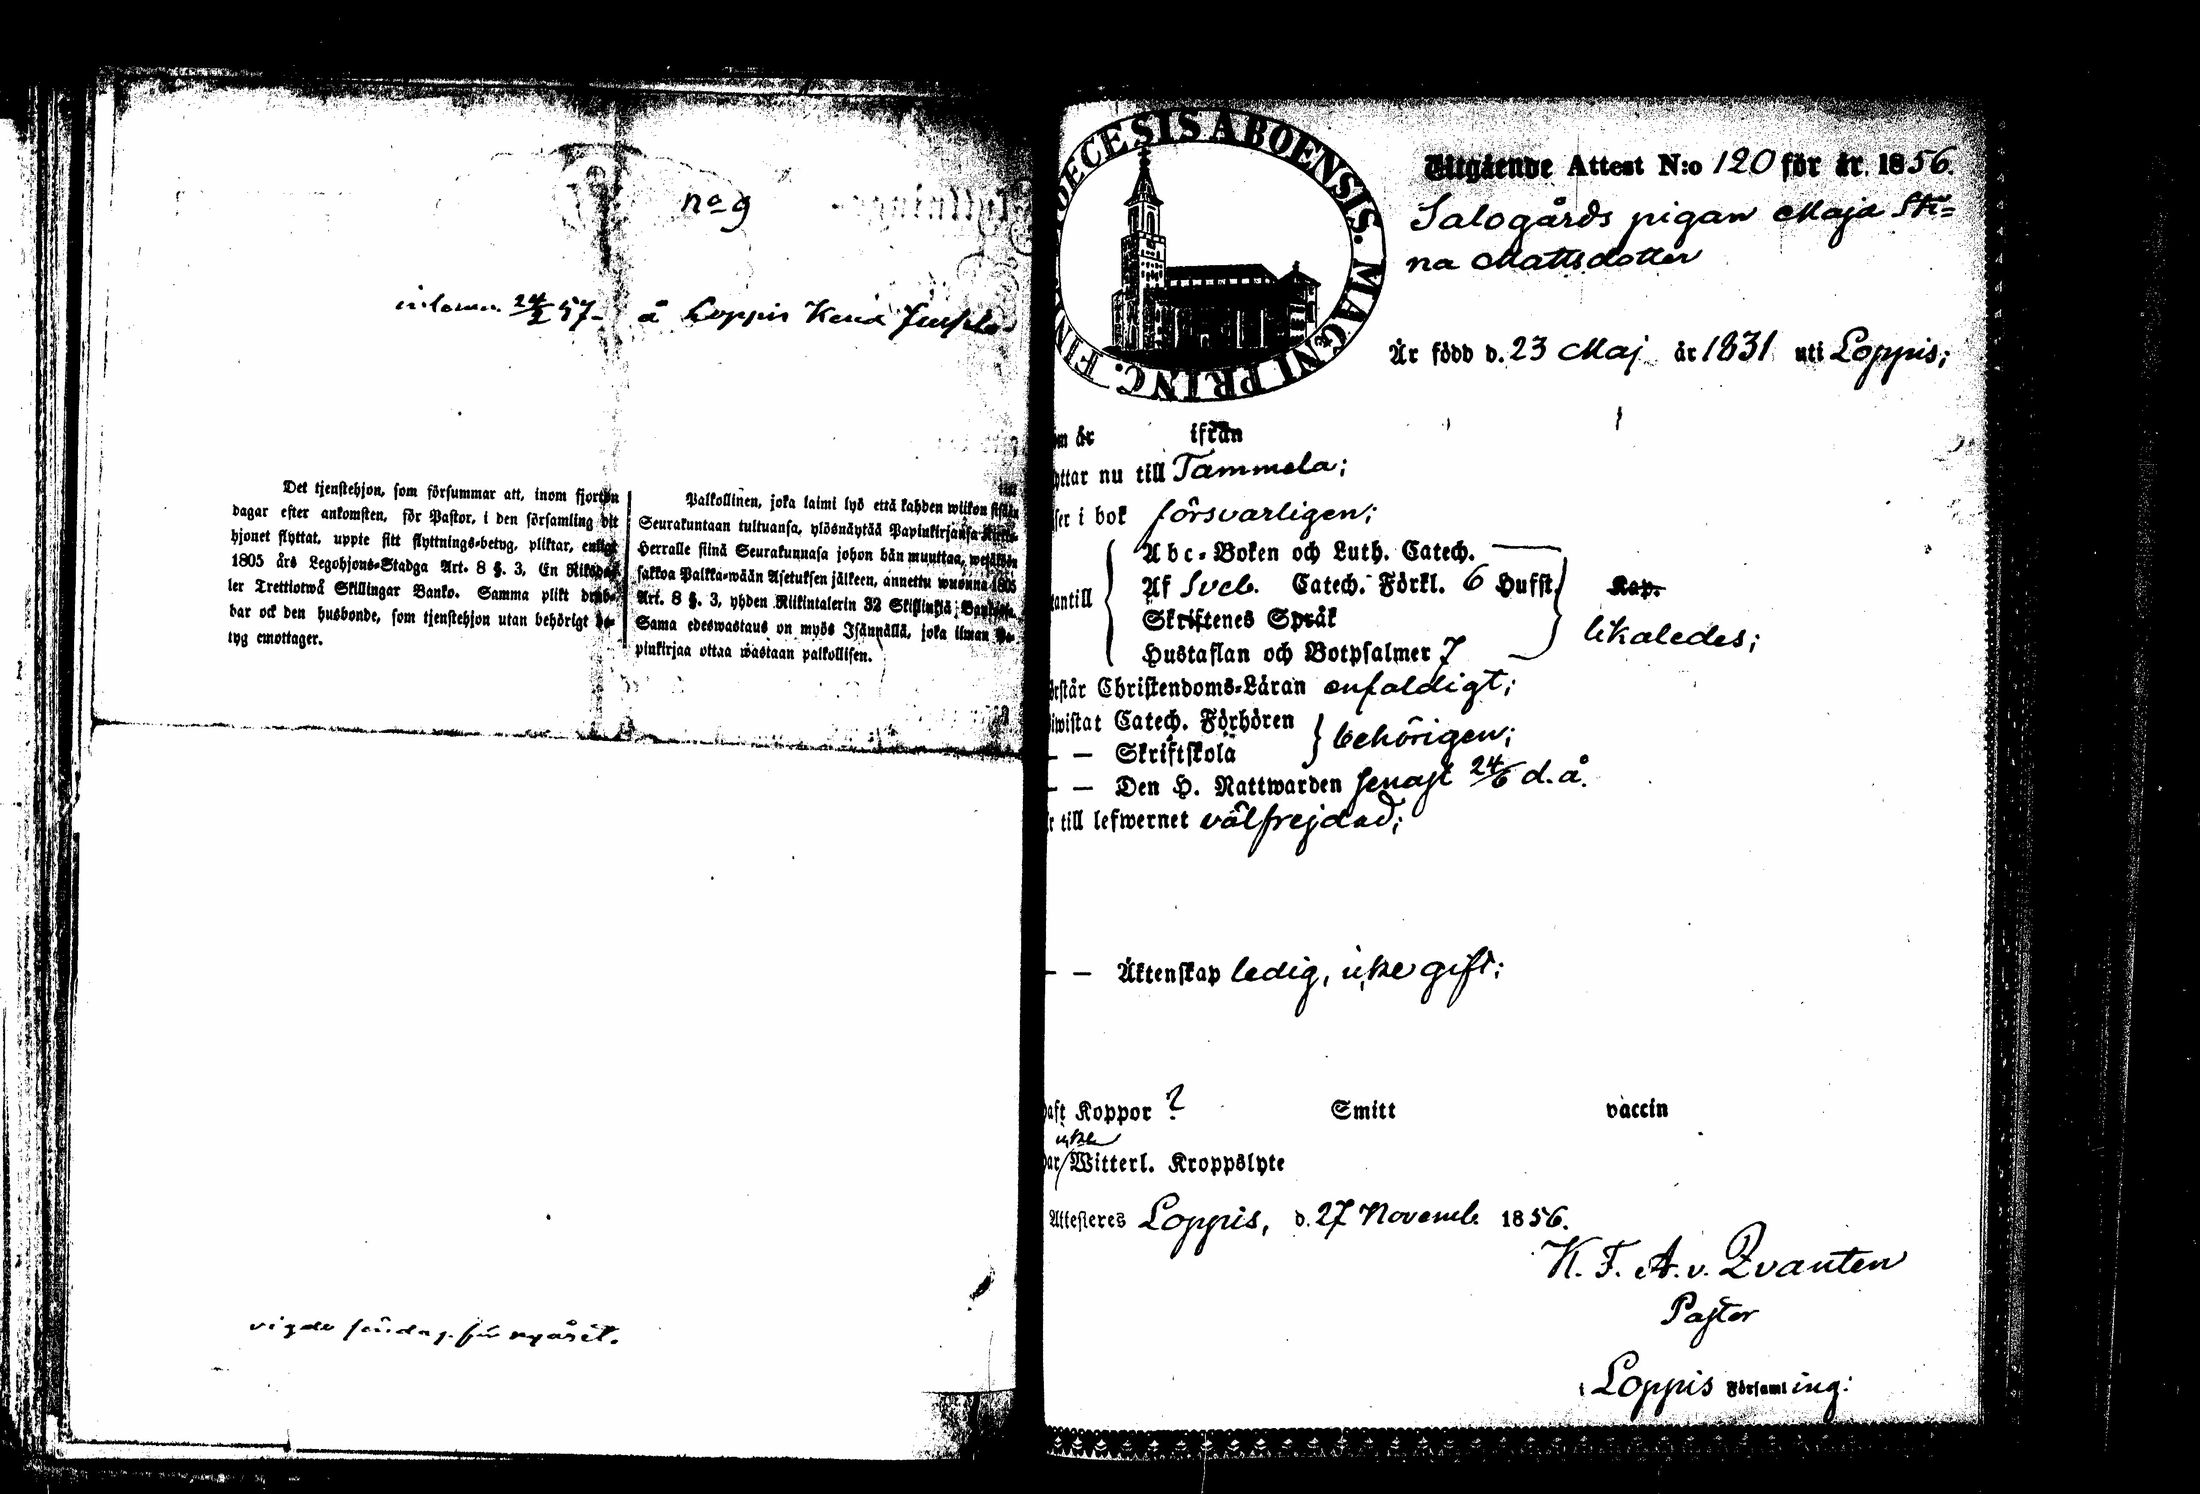 no 9
inlemn. 24/2 57. å Loppis
Det tjenstehjon, som försummar att, inom fjorton
dagar efter ankomsten, för Pastor, i den församling dit
hjonet flyttat, uppte sitt flyttnings-betyg, pliktar, enligt
1805 års Legohjons-Stadga Art. 8 §. 3, En Riksda-
ler Trettiotwå Skillingar Banko. Samma plikt drab-
bar ock den husbonde, som tjenstehjon utan behörigt be-
tyg emottager.
Palkollinen, joka laimi lyö että kahden wiikon sisään
Seurakuntaan tultuansa, ylösnäytää Papinkirjansa Kirko-
Herralle siinä Seurakunnasa johon hän muuttaa, wetäköön
sakkoa Palkka-wään Asetuksen jälkeen, annettu wuonna 1805
Art. 8 §. 3, yhden Riikintalerin 32 Skillinkiä Bankosa.
Sama edeswastaus on myös Isännällä, joka ilman Pa-
pinkirjaa ottaa wastaan palkollisen.
vigde söndag. för nyåret.
DIOECESIS ABOENSIS. MAGNI PRINC. FIN
Utgående Attest N:o 120 för år 1856.
Salogårds pigan Maja Sti=
na Mattsdotter
Är född d. 23 Maj år 1831 uti Loppis;
om år ifrån
yttar nu till Tammela;
ser i bok försvarligen;
Abc-Boken och Luth. Catech.
Af Sveb. Catech. Förkl. 6 Hufst. Kap.
tantill
Skriftenes Språk
likaledes;
Hustaflan och Botpsalmer 7
örstår Christendoms-Läran enfaldigt;
iwistat Catech. Förhören
— — Skriftskola behörigen;
— — Den H. Nattwarden senast 24/6 d. å.
r till lefwernet välfrejdad;
— — Äktenskap ledig, icke gift;
haft Koppor ? Smitt vaccin
icke
har Witterl. Kroppslyte
Attesteres Loppis, d. 27 Novemb. 1856.
K. F. A. v. Qvanten
Pastor
i Loppis Församling: